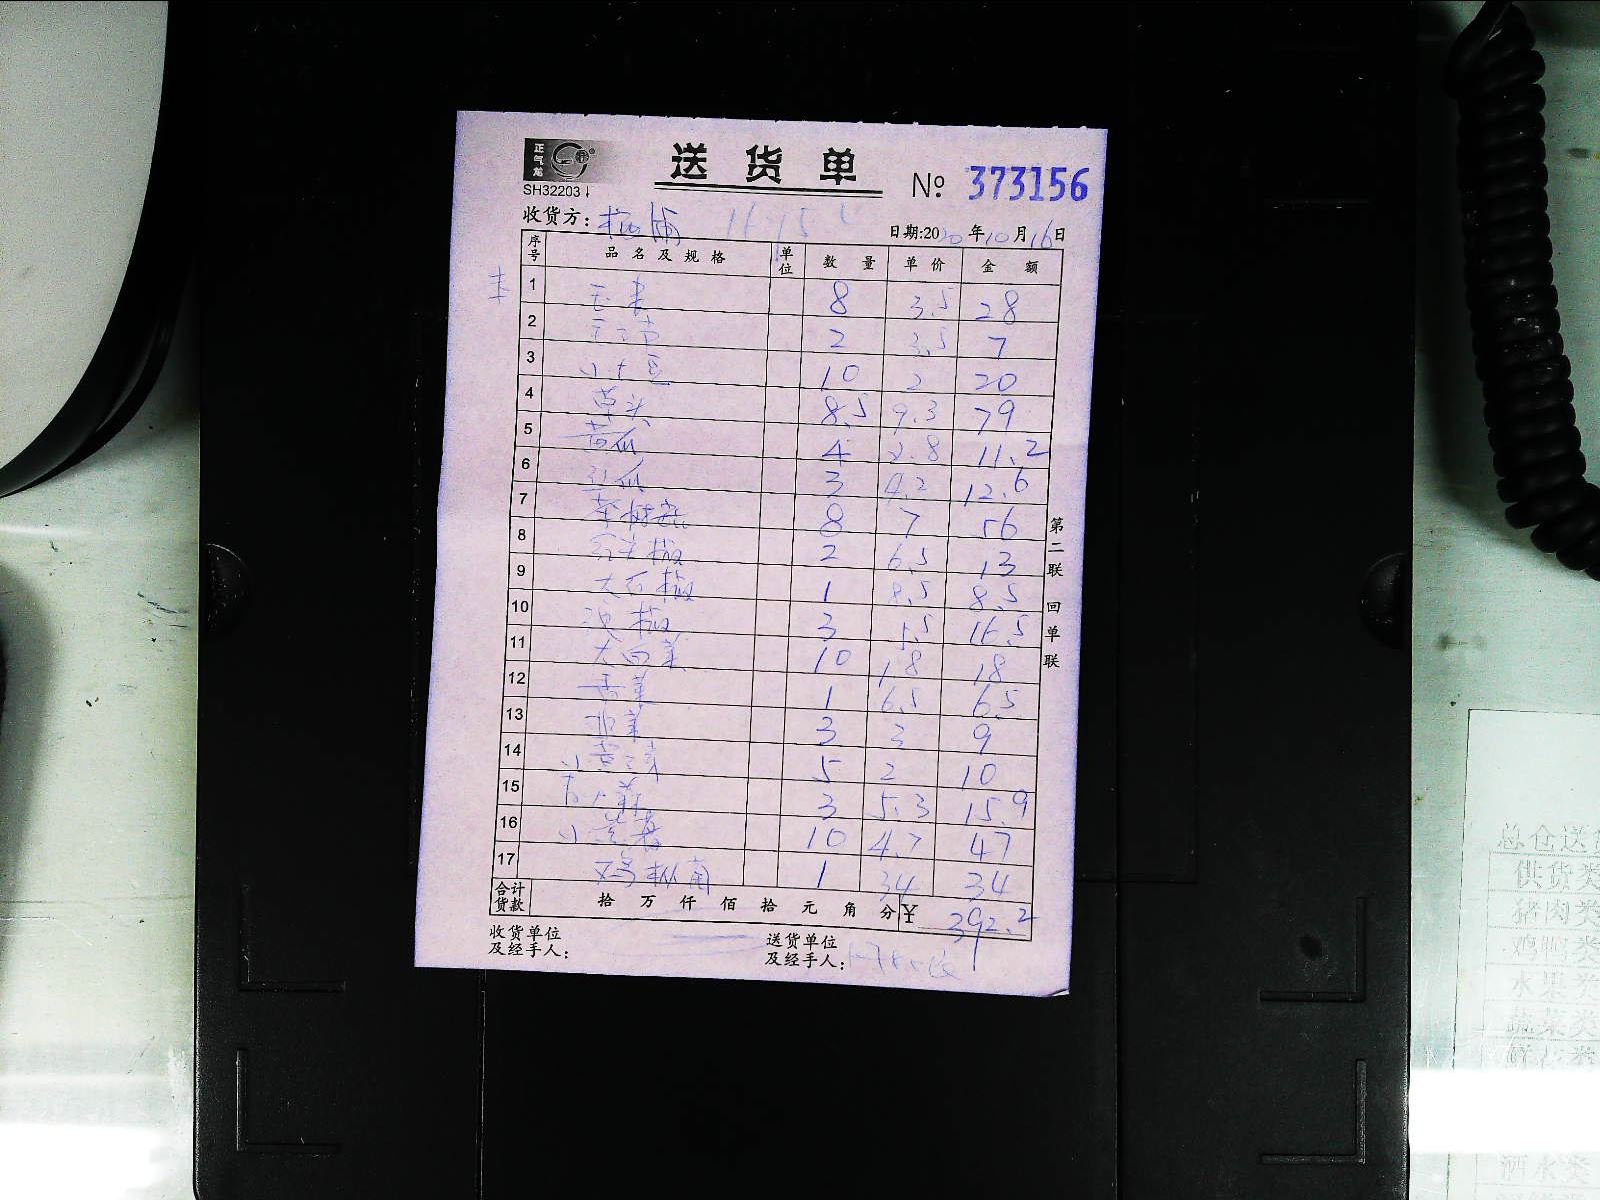 正气龙
送 货 单
№ 373156
SH32203
收货方：
日期:2020 年 10 月 16 日
序号 品名及规格 单位 数 量 单 价 金 额
1 玉米 8 3.5 28
2 2 3.5 7
3 小土豆 10 2 20
4 草头 8.5 9.3 79
5 黄瓜 4 2.8 11.2
6 瓜 3 4.2 12.6
7 茶树菇 8 7 56
8 尖椒 2 6.5 13
9 大红椒 1 8.5 8.5
10 椒 3 5.5 16.5
11 大白菜 10 1.8 18
12 香菜 1 6.5 6.5
13 菜 3 3 9
14 小黄 5 2 10
15 3 5.3 15.9
16 小 薯 10 4.7 47
17 鸡枞菌 1 34 34
合计货款 拾 万 仟 佰 拾 元 角 分 ¥ 392.2
收货单位
及经手人：
送货单位
及经手人：
第二联 回单联
总仓送货
供货类
猪肉类
鸡鸭类
水果类
蔬菜类
酒水类